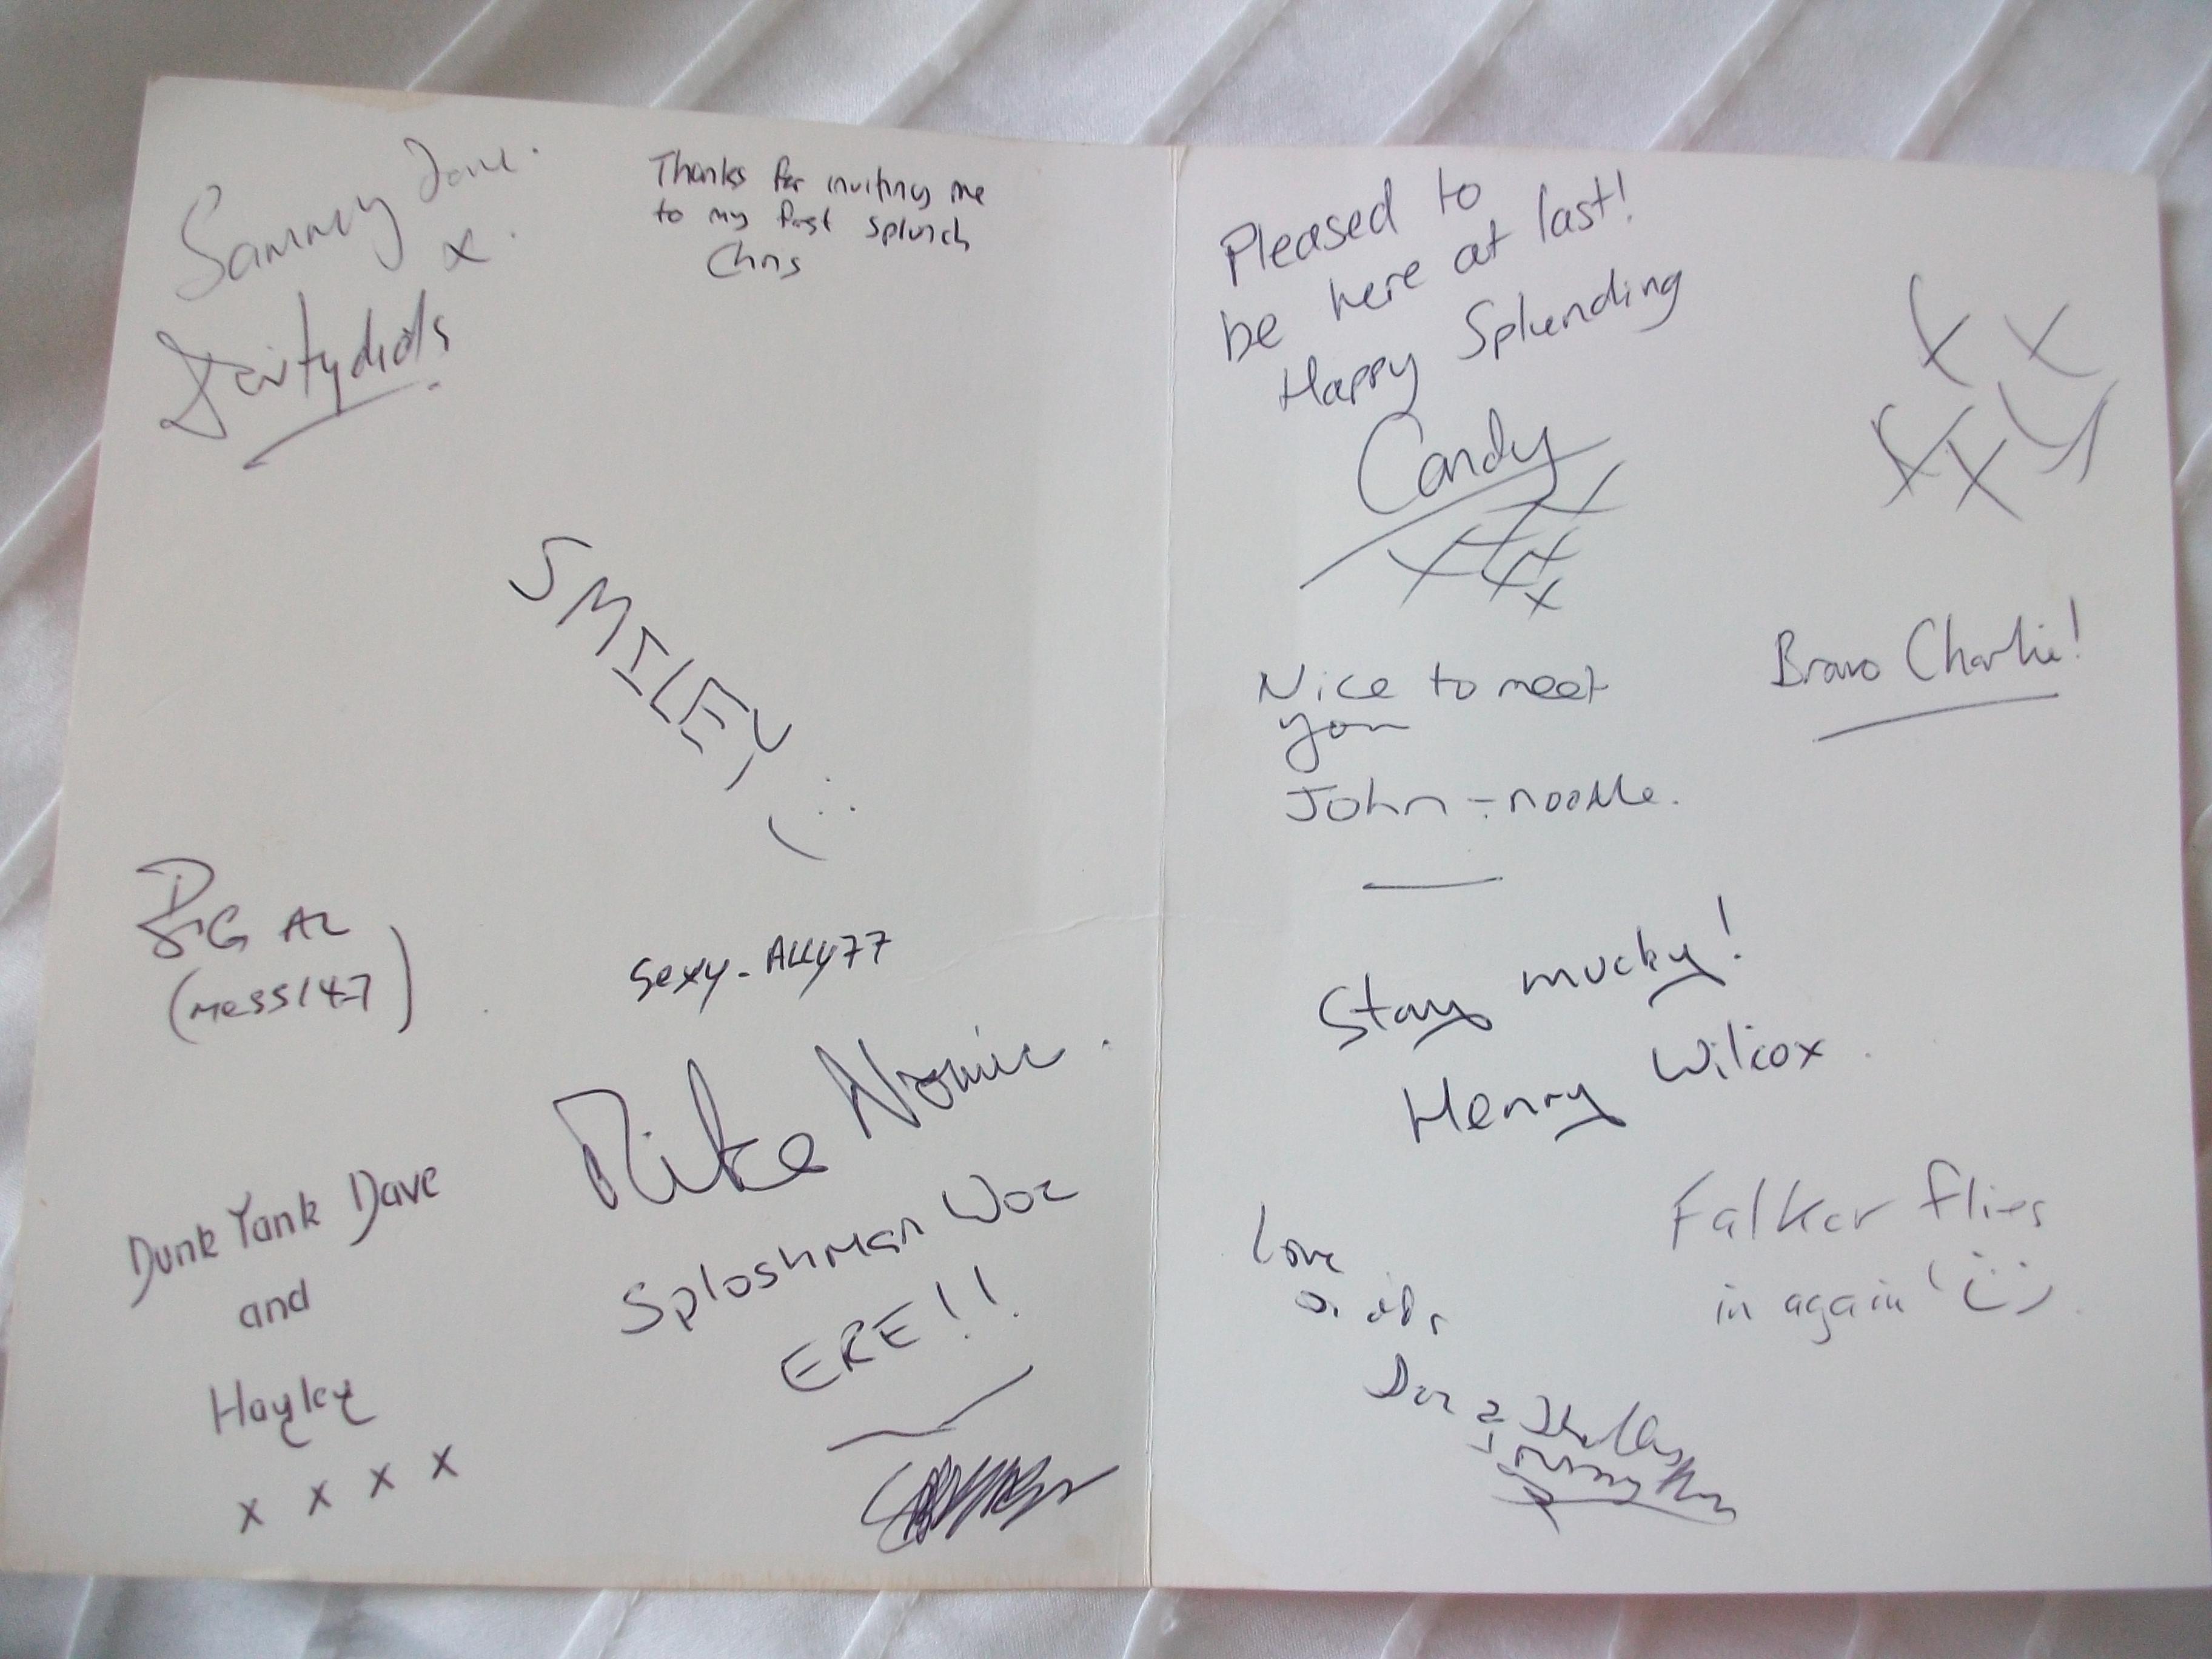 Sammy Jane.
x.
Thanks for inviting me
to my first splunch
Chris
SMILEY
:(
BIG AL
(mess147)
Sexy-Ally77
Mike
Sploshman Woz
ERE!!
Dunk Tank Dave
and
Hayley
x x x x
Pleased to
be here at last!
Happy Splunding
Candy
x x x x x
x x
x x x
Bravo Charlie!
Nice to meet
you
John - noodle.
Stay mucky!
Henry Wilcox.
Falker flies
in again!
Love